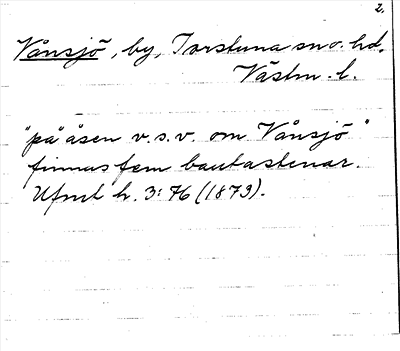 2.
Vånsjö, by, Torstuna sn o. hd.
Västm. l.
"på åsen v.s.v. om Vånsjö"
finnas fem bautastenar.
Ufmt h. 3: 76 (1873).